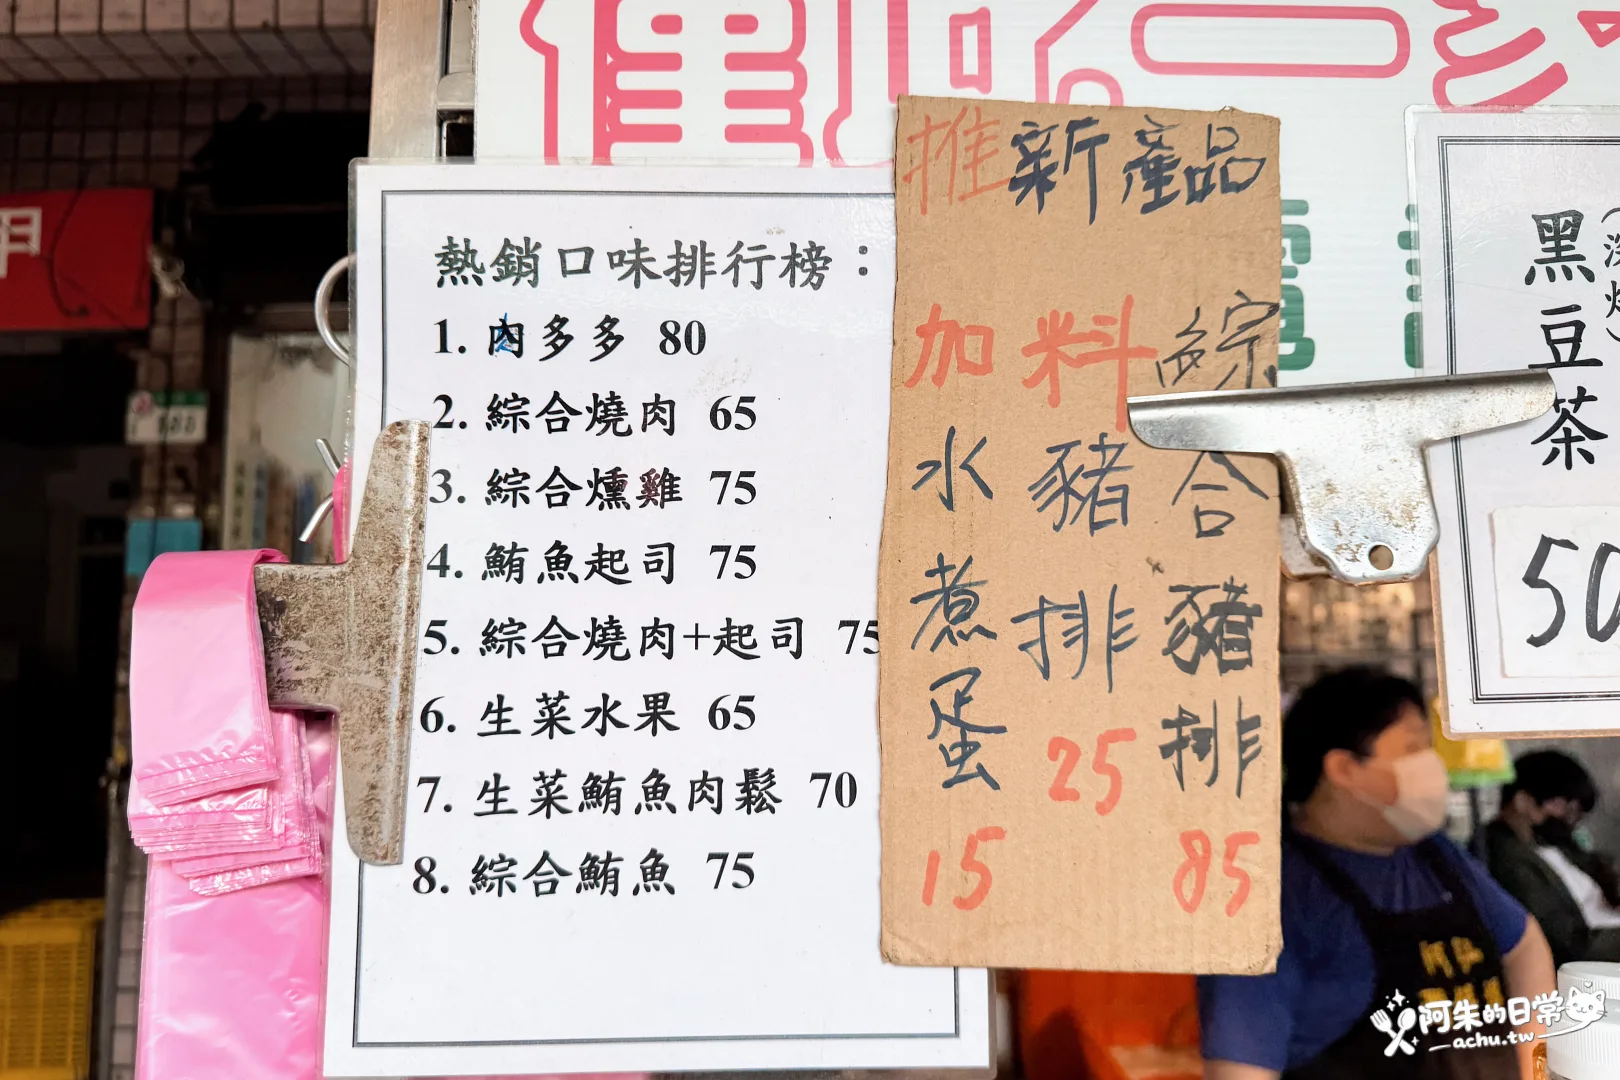 熱銷口味排行榜：
1. 肉多多 80
2. 綜合燒肉 65
3. 綜合燻雞 75
4. 鮪魚起司 75
5. 綜合燒肉+起司 75
6. 生菜水果 65
7. 生菜鮪魚肉鬆 70
8. 綜合鮪魚 75
推新產品
綜合豬排 85
加料
豬排 25
水煮蛋 15
黑豆茶
50
阿朱的日常
achu.tw